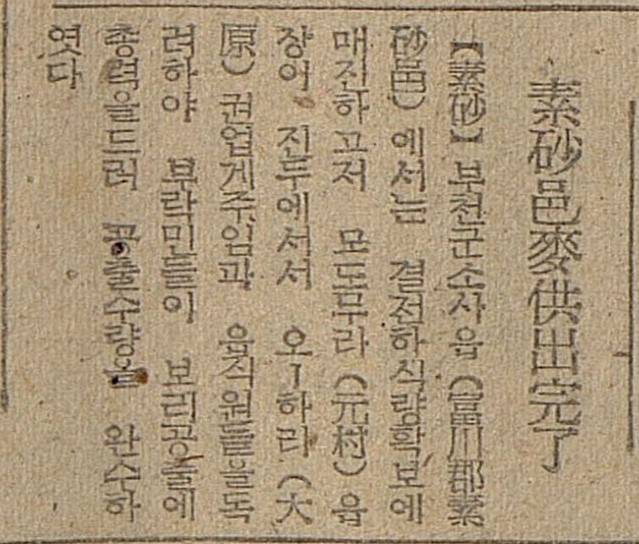 素砂邑麥供出完了
【素砂】보천군소사읍(富川郡素
砂邑)에서는 결전하식량확보에
매진하고저 모도무라(元村)읍
장이 진두에서서 오ー하라(大
原)권업게주임과 읍직원들을독
려하야 부락민들이 보리공출에
총력을드러 공출수량을 완수하
엿다